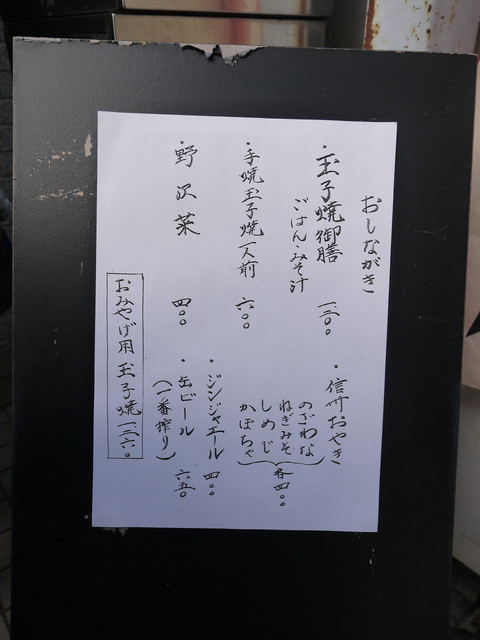 おしながき
・玉子焼御膳 一、三〇〇
ごはん・みそ汁
・手焼玉子焼一人前 六〇〇
・野沢菜 四〇〇
・信州おやき
のざわな
ねぎみそ
しめじ
かぼちゃ
各四〇〇
・ジンジャエール 四〇〇
・缶ビール 六五〇
(一番搾り)
おみやげ用玉子焼一三六〇